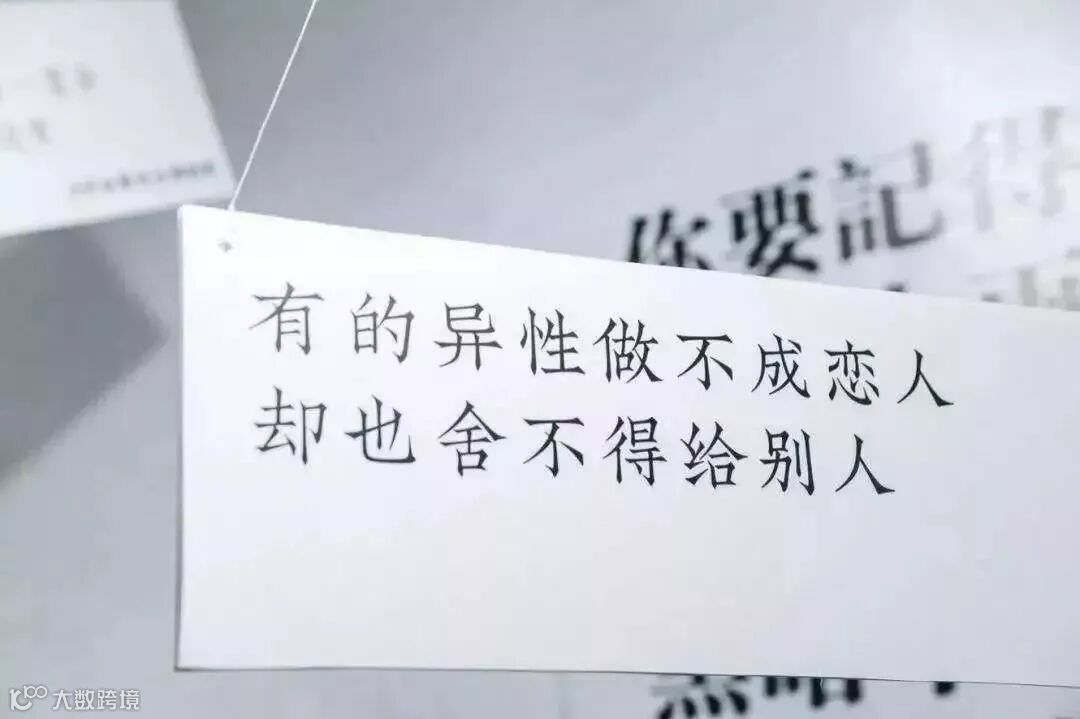 你要記得
有的异性做不成恋人
却也舍不得给别人
大数跨境